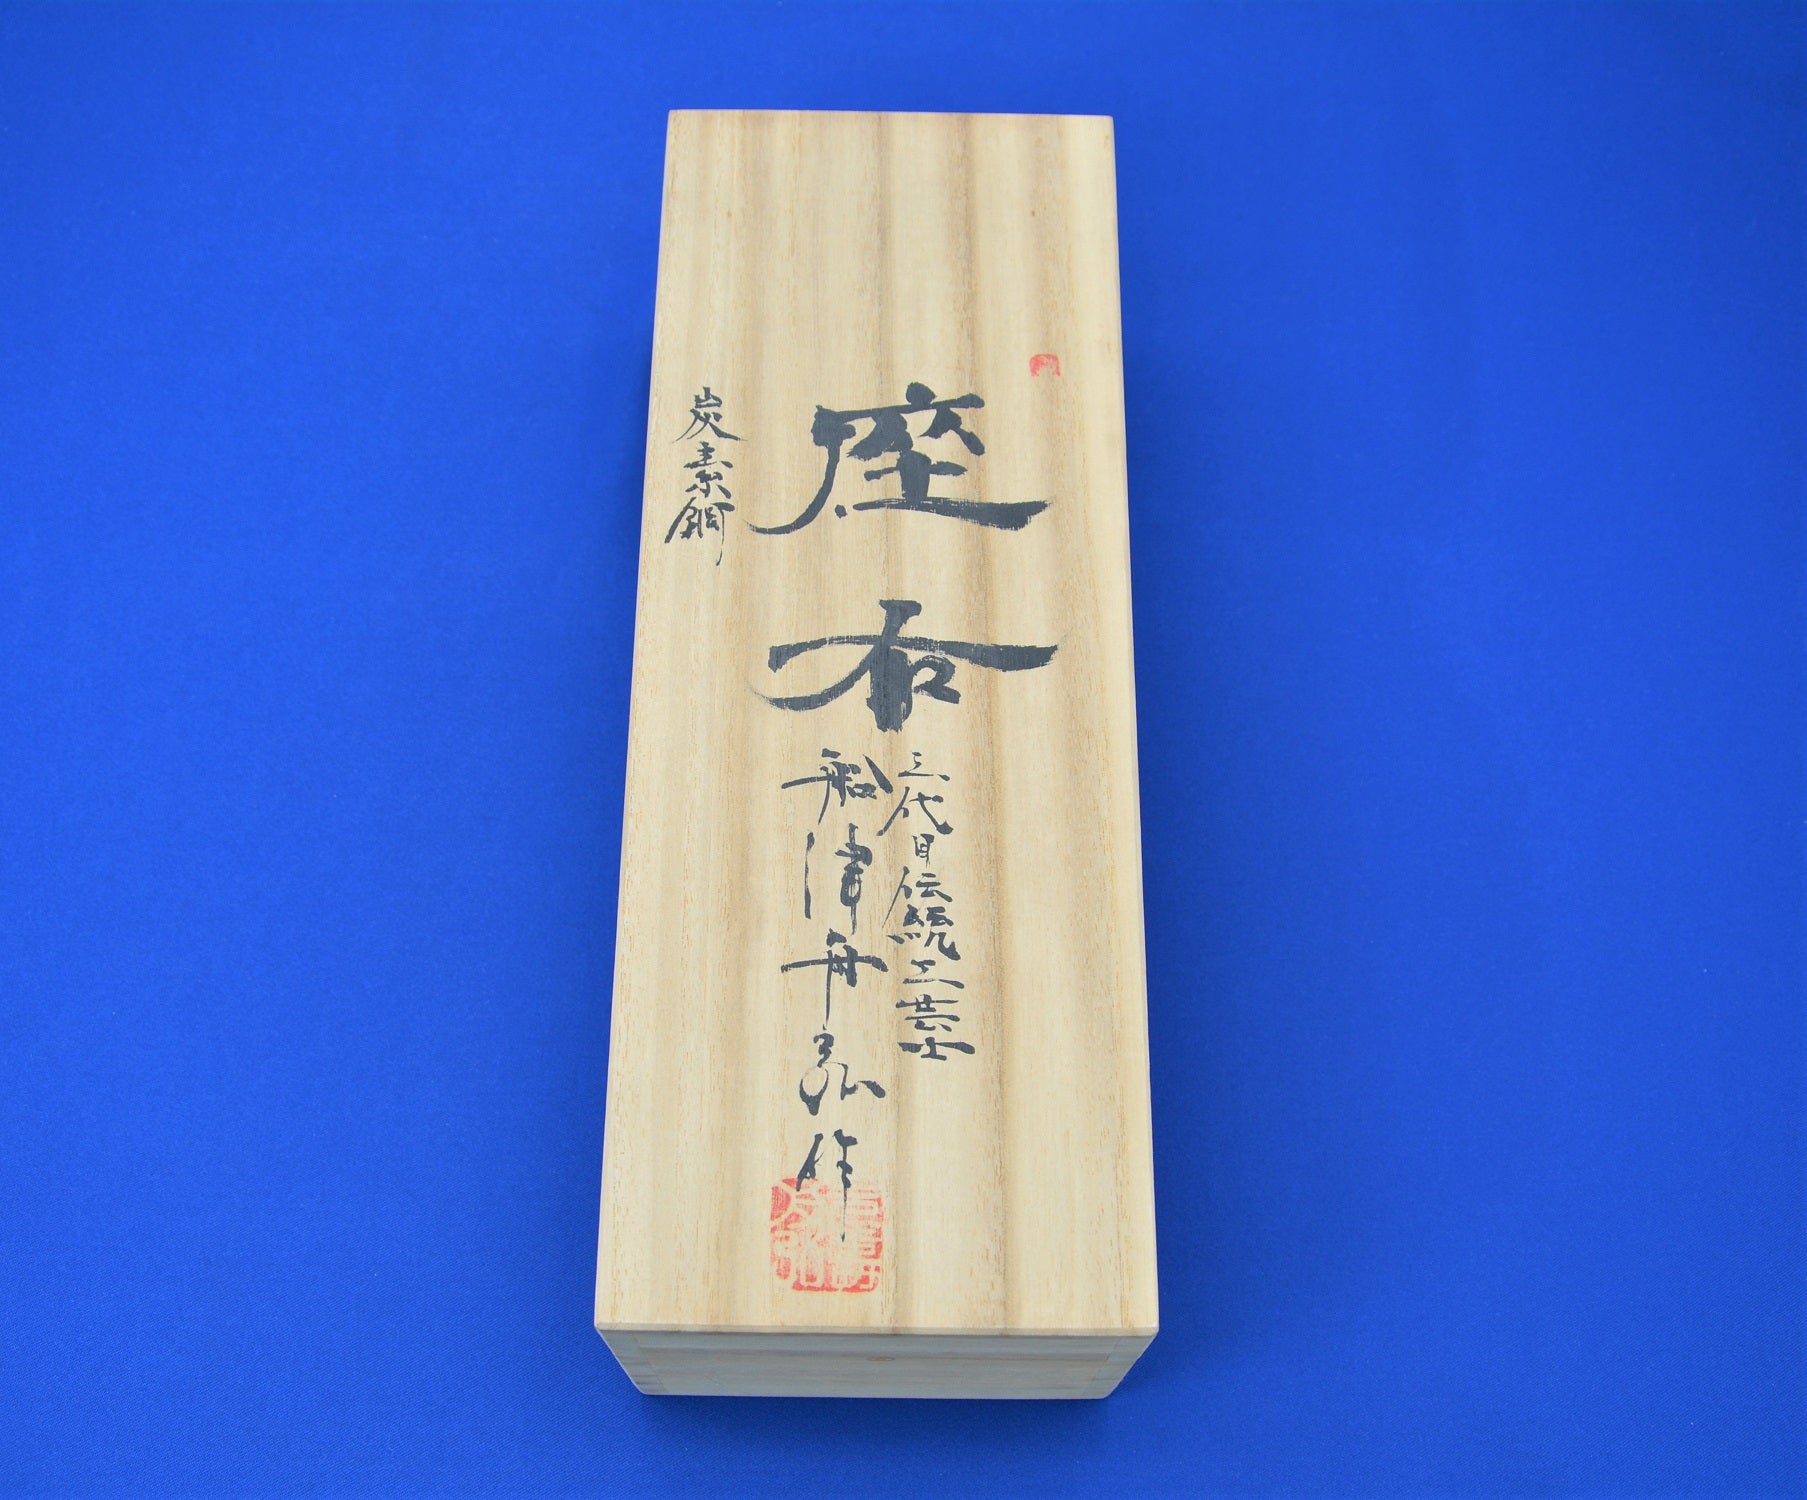 座右
三代目伝統工芸士
船津舟弘作
炭素鋼